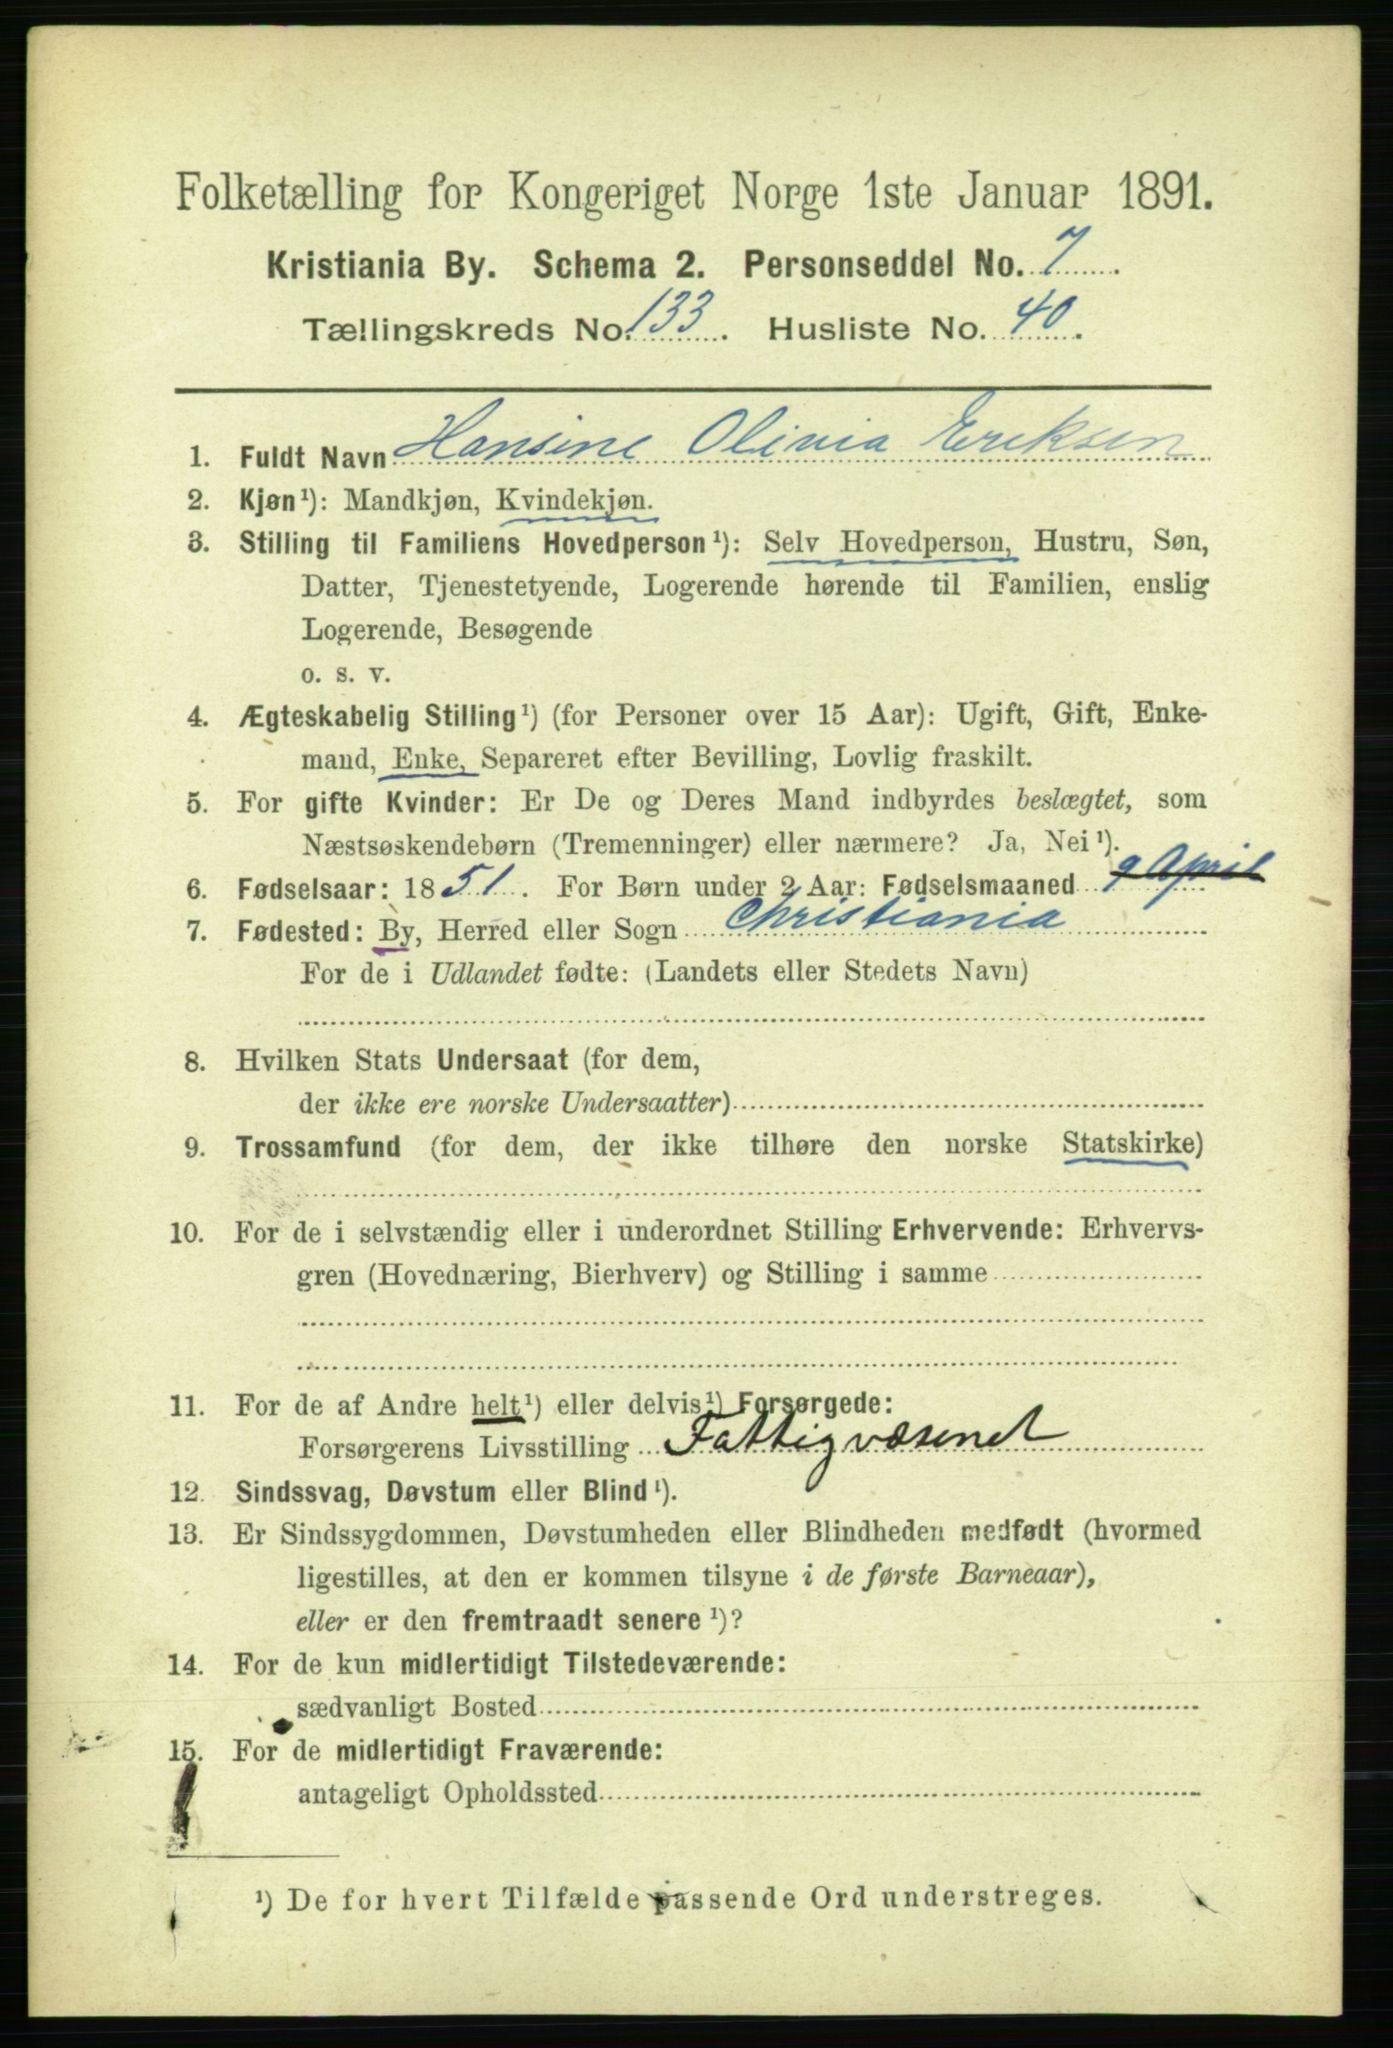 Folketælling for Kongeriget Norge 1ste Januar 1891.
Kristiania By. Schema 2. Personseddel No. 7.
Tællingskreds No. 133. Husliste No. 40.
1. Fuldt Navn Hansine Olivia Eriksen
2. Kjøn¹): Mandkjøn, Kvindekjøn.
3. Stilling til Familiens Hovedperson¹): Selv Hovedperson, Hustru, Søn,
Datter, Tjenestetyende, Logerende hørende til Familien, enslig
Logerende, Besøgende
o. s. v.
4. Ægteskabelig Stilling¹) (for Personer over 15 Aar): Ugift, Gift, Enke-
mand, Enke, Separeret efter Bevilling, Lovlig fraskilt.
5. For gifte Kvinder: Er De og Deres Mand indbyrdes beslægtet, som
Næstsøskendebørn (Tremenninger) eller nærmere? Ja, Nei¹).
6. Fødselsaar: 1851. For Børn under 2 Aar: Fødselsmaaned 9 April
7. Fødested: By, Herred eller Sogn Christiania
For de i Udlandet fødte: (Landets eller Stedets Navn)
8. Hvilken Stats Undersaat (for dem,
der ikke ere norske Undersaatter)
9. Trossamfund (for dem, der ikke tilhøre den norske Statskirke)
10. For de i selvstændig eller i underordnet Stilling Erhvervende: Erhvervs-
gren (Hovednæring, Bierhverv) og Stilling i samme
11. For de af Andre helt¹) eller delvis¹) Forsørgede:
Forsørgerens Livsstilling Fattigvæsenet
12. Sindssvag, Døvstum eller Blind¹).
13. Er Sindssygdommen, Døvstumheden eller Blindheden medfødt (hvormed
ligestilles, at den er kommen tilsyne i de første Barneaar),
eller er den fremtraadt senere¹)?
14. For de kun midlertidigt Tilstedeværende:
sædvanligt Bosted
15. For de midlertidigt Fraværende:
antageligt Opholdssted
¹) De for hvert Tilfælde passende Ord understreges.